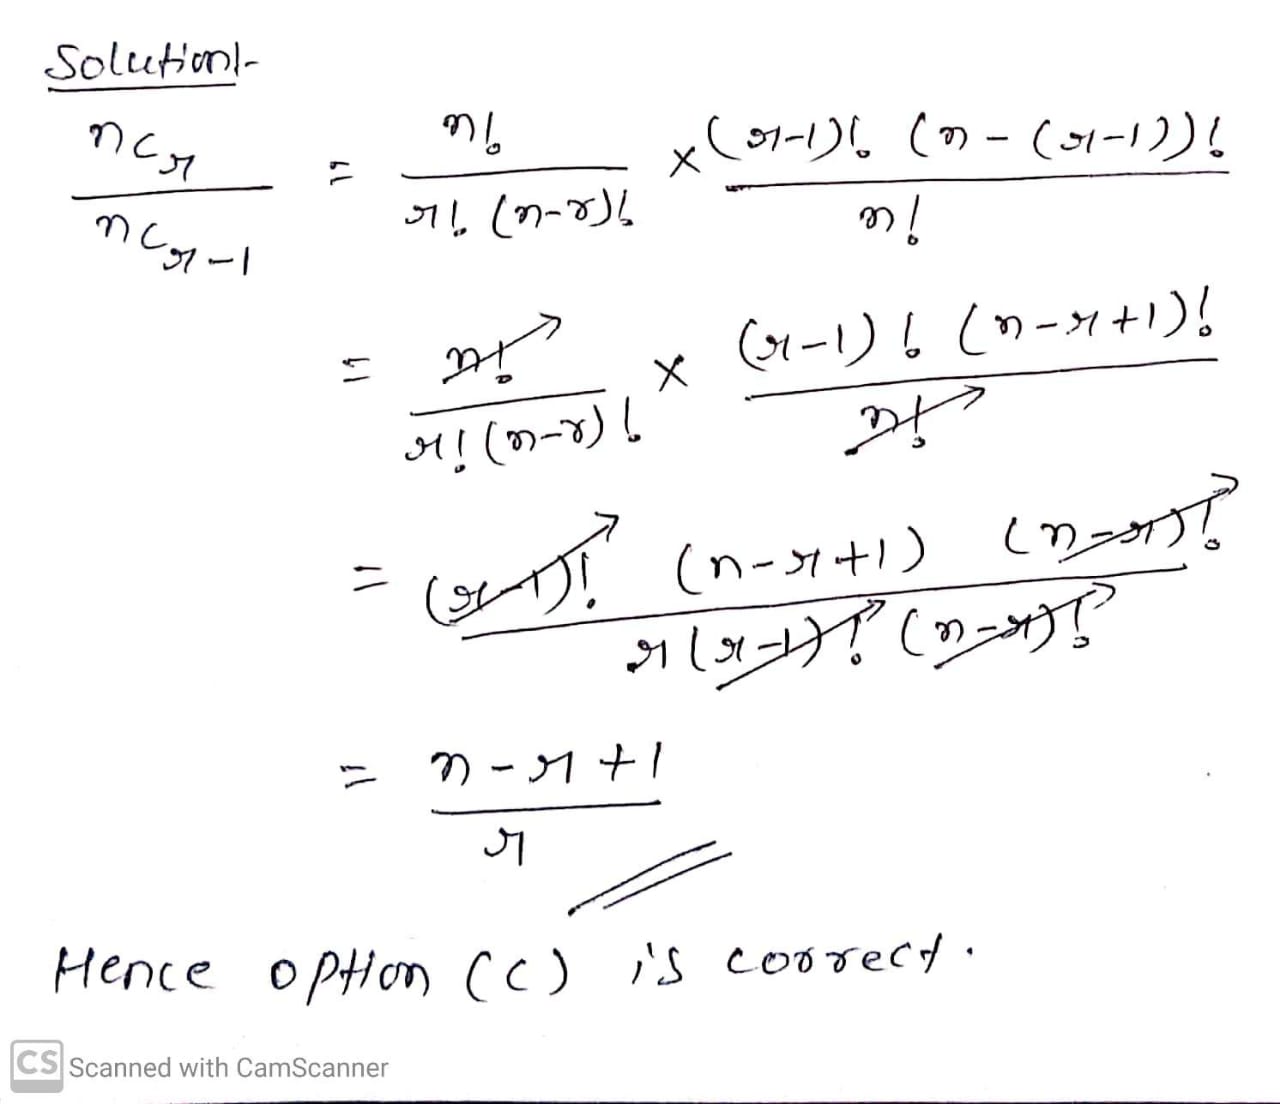 Solution:-
nCr / nCr-1 = n! / r! (n-r)! × (r-1)! (n - (r-1))! / n!
= n! / r! (n-r)! × (r-1)! (n-r+1)! / n!
= (r-1)! (n-r+1) (n-r)! / r(r-1)! (n-r)!
= n-r+1 / r
Hence option (c) is correct.
CS Scanned with CamScanner